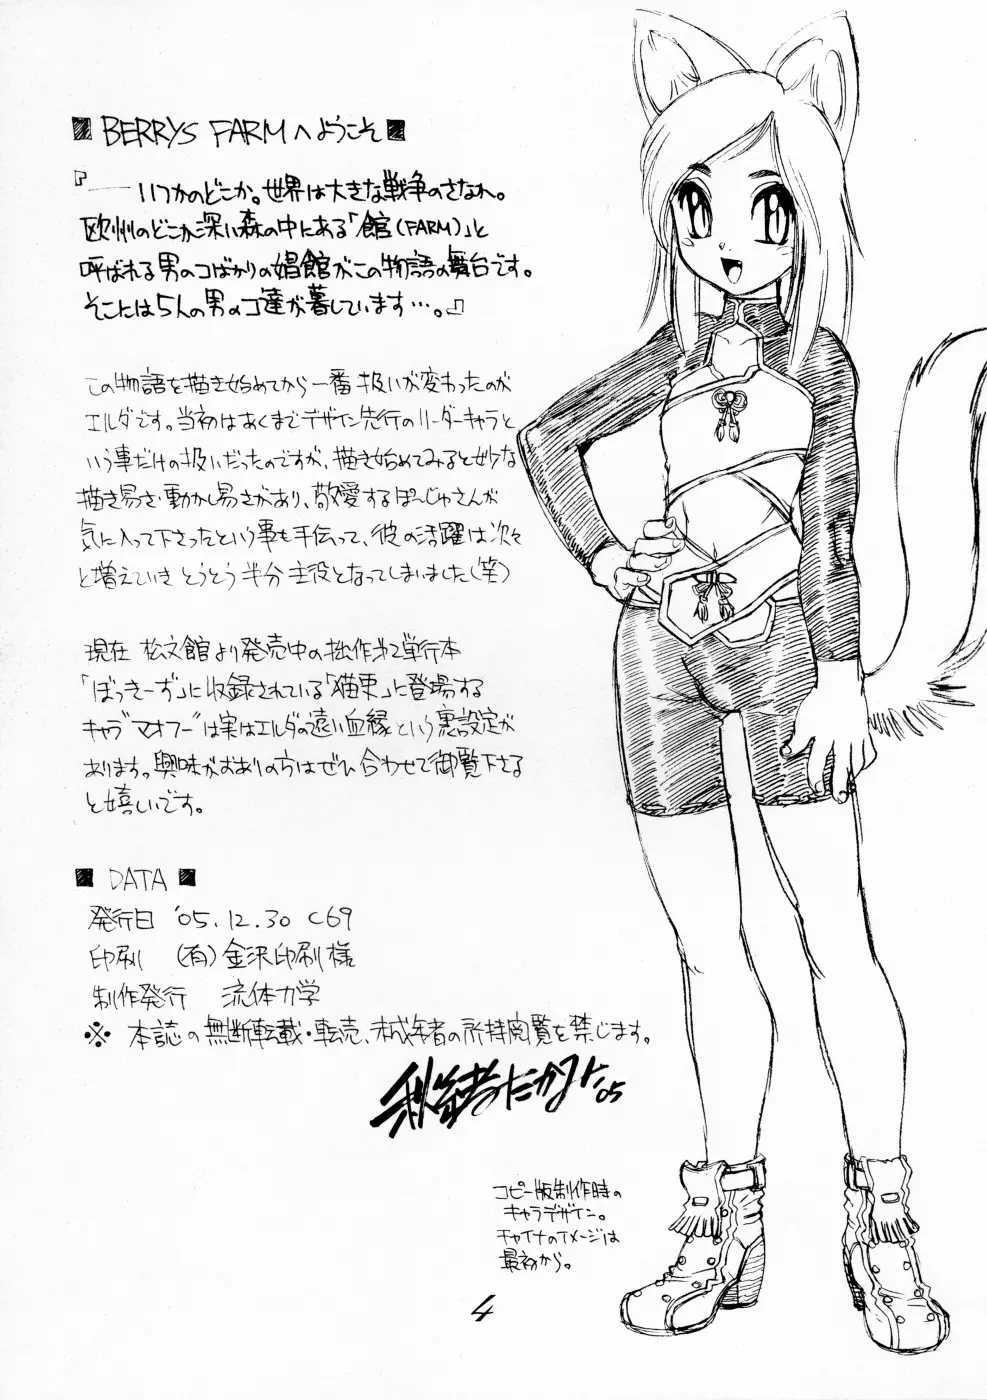 ■ BERRYS FARMへようこそ ■
『――いつかのどこか。世界は大きな戦争のさなか。
欧州のどこか深い森の中にある「館(FARM)」と
呼ばれる男のコばかりの娼館がこの物語の舞台です。
そこには5人の男のコ達が暮しています…。』
この物語を描き始めてから一番扱いが変わったのが
エルダです。当初はあくまでデザイン先行のリーダーキャラと
いう事だけの扱いだったのですが、描き始めてみると妙な
描き易さ・動かし易さがあり、敬愛するぽーじゅさんが
気に入って下さったという事も手伝って、彼の活躍は次々
と増えていき とうとう半分主役となってしまいました(笑)
現在 松文館より発売中の拙作第2単行本
「ぼっきーず」に収録されている「猫東」に登場する
キャラ"マオフー"は実はエルダの遠い血縁という裏設定が
あります。興味がおありの方はぜひ合わせて御覧下さる
と嬉しいです。
■ DATA ■
発行日 '05.12.30 C69
印刷 (有)金沢印刷様
制作発行 流体力学
※ 本誌の無断転載・転売、未成年者の所持閲覧を禁じます。
05
コピー版制作時の
キャラデザイン。
チャイナのイメージは
最初から。
4